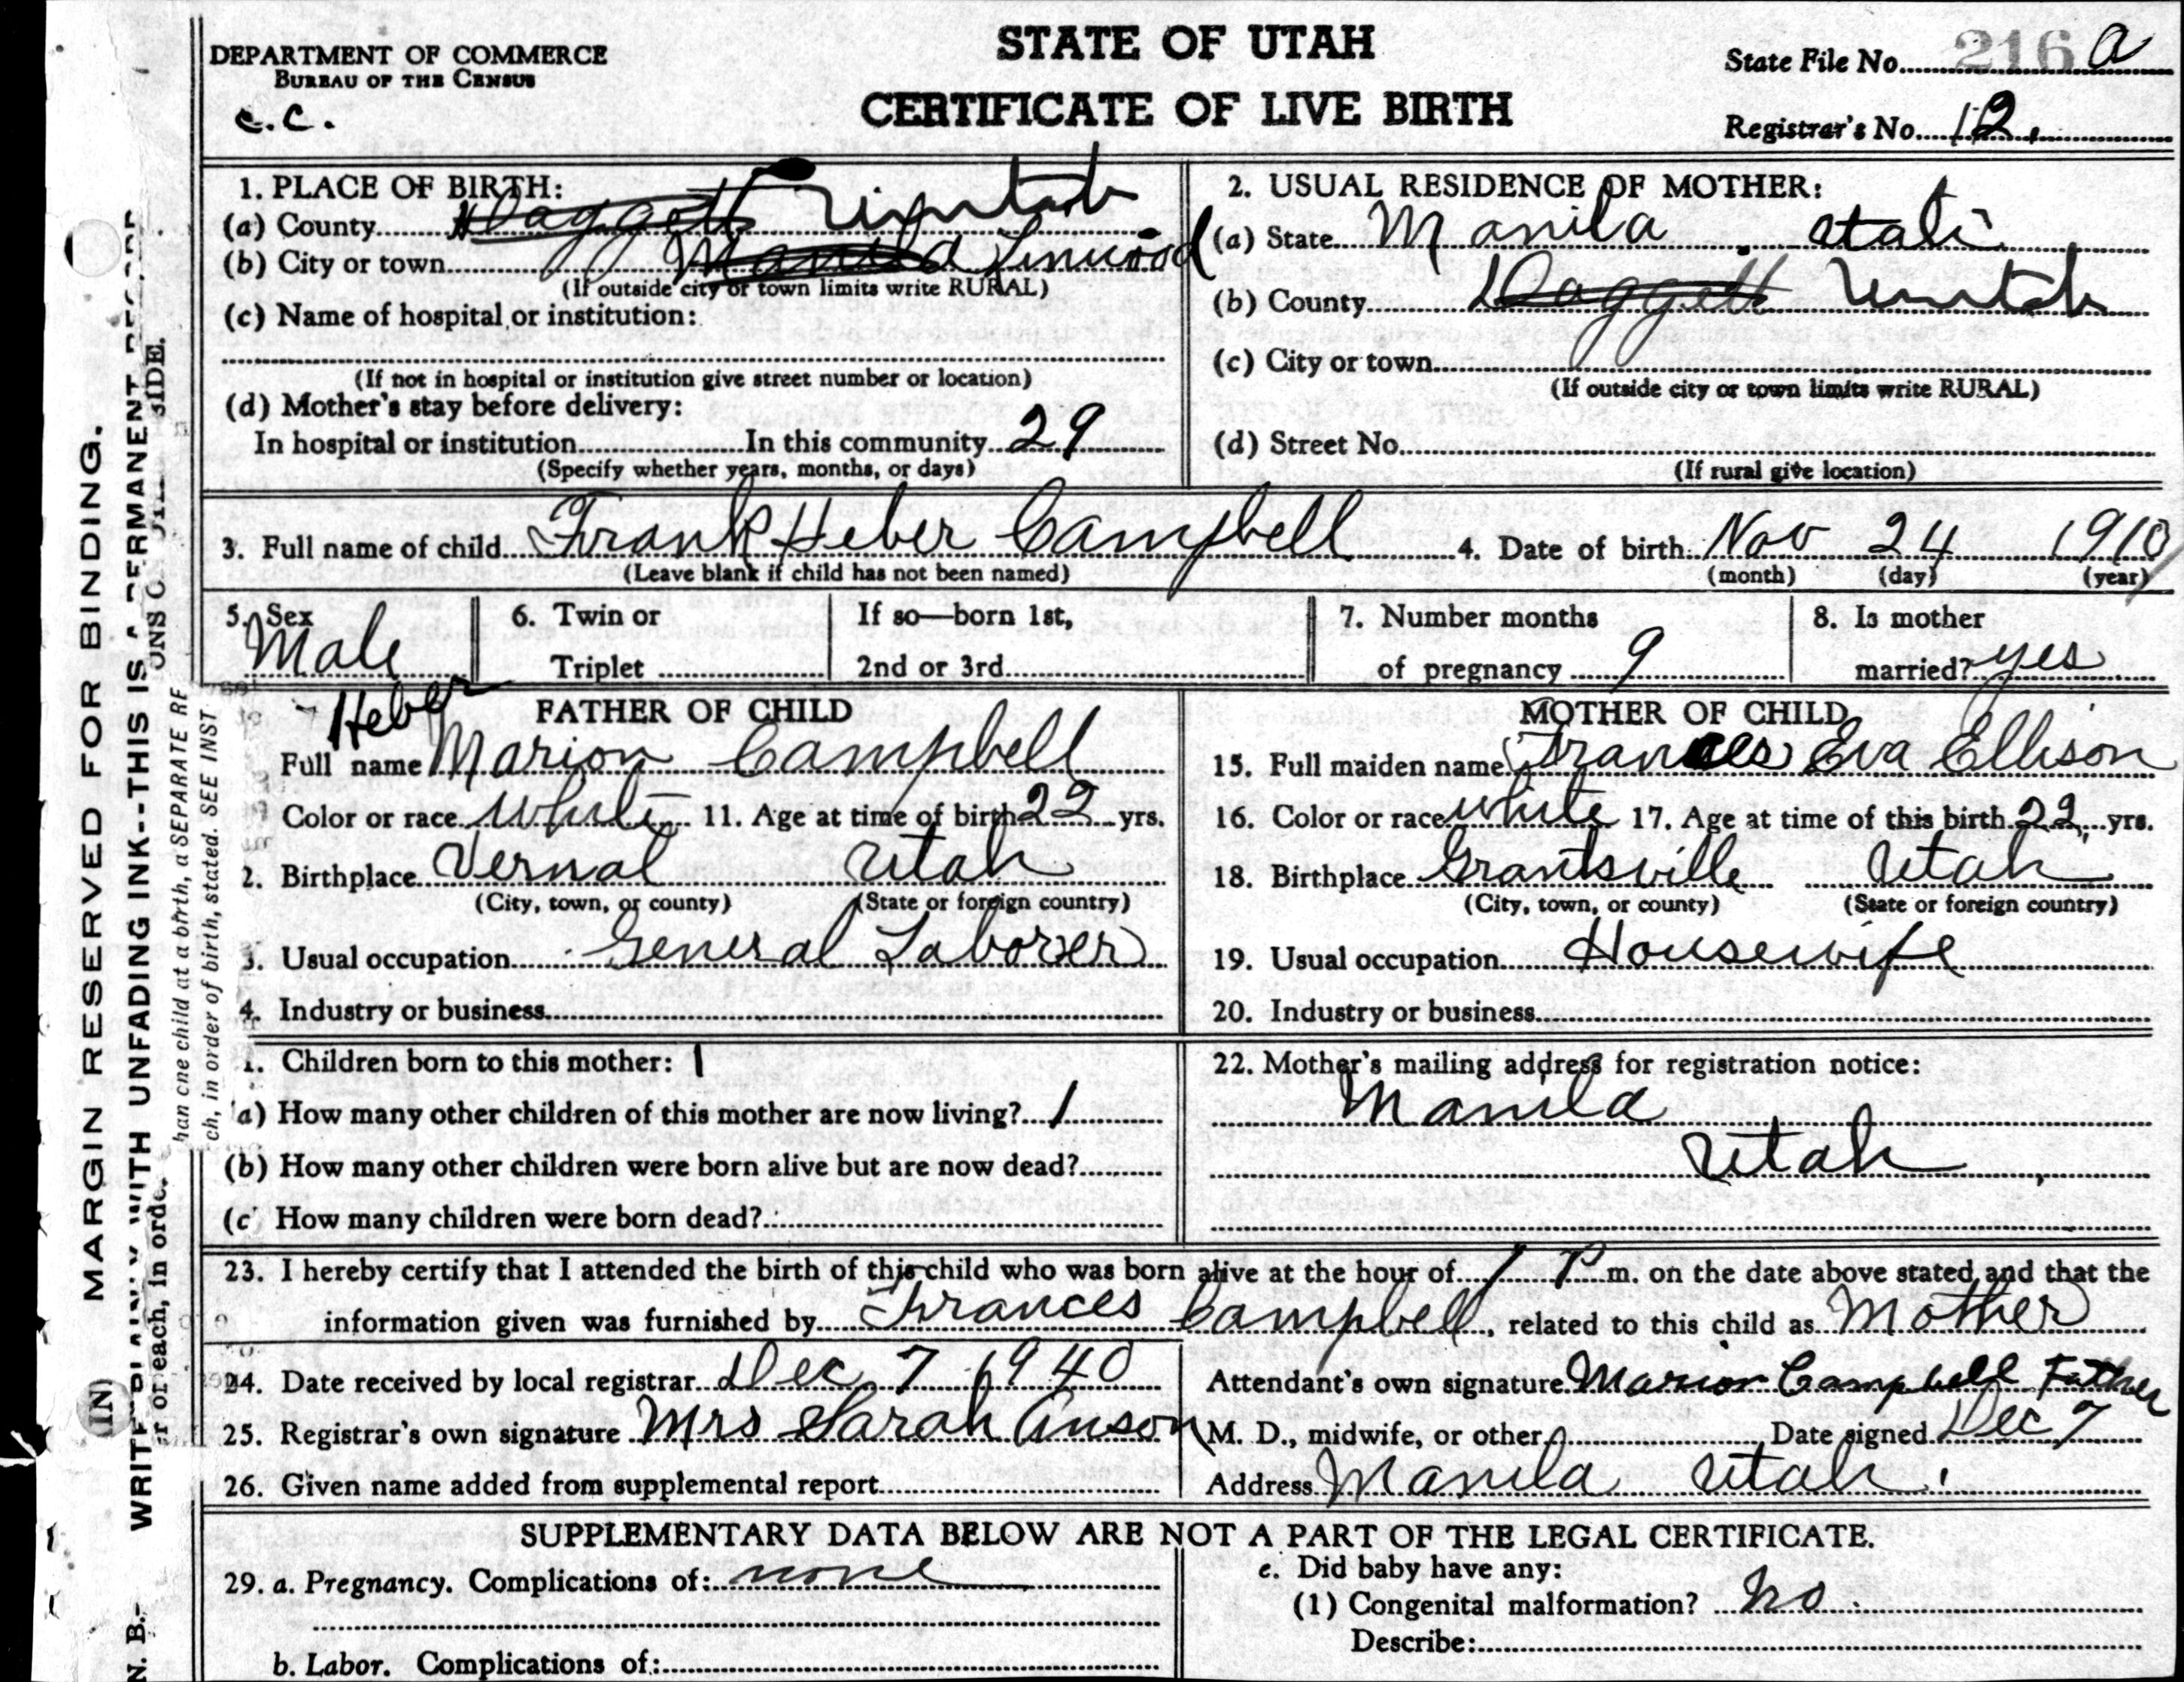 DEPARTMENT OF COMMERCE
BUREAU OF THE CENSUS
c.c.
STATE OF UTAH
CERTIFICATE OF LIVE BIRTH
State File No. 216 a
Registrar's No. 12.
1. PLACE OF BIRTH:
(a) County Daggett Uintah
(b) City or town Manila Linwood
(If outside city or town limits write RURAL)
(c) Name of hospital or institution:
(If not in hospital or institution give street number or location)
(d) Mother's stay before delivery:
In hospital or institution In this community 29
(Specify whether years, months, or days)
2. USUAL RESIDENCE OF MOTHER:
(a) State Manila Utah
(b) County Daggett Uintah
(c) City or town
(If outside city or town limits write RURAL)
(d) Street No.
(If rural give location)
3. Full name of child Frank Heber Campbell 4. Date of birth Nov 24 1910
(Leave blank if child has not been named) (month) (day) (year)
5. Sex Male
6. Twin or Triplet
If so—born 1st, 2nd or 3rd
7. Number months of pregnancy 9
8. Is mother married? yes
FATHER OF CHILD
Heber
Full name Marion Campbell
Color or race White 11. Age at time of birth 22 yrs.
2. Birthplace Vernal Utah
(City, town, or county) (State or foreign country)
3. Usual occupation General Laborer
4. Industry or business
MOTHER OF CHILD
15. Full maiden name Frances Eva Ellison
16. Color or race white 17. Age at time of this birth 22 yrs.
18. Birthplace Grantsville Utah
(City, town, or county) (State or foreign country)
19. Usual occupation Housewife
20. Industry or business
1. Children born to this mother: 1
a) How many other children of this mother are now living? 1
(b) How many other children were born alive but are now dead?
(c How many children were born dead?
22. Mother's mailing address for registration notice:
Manila
Utah
23. I hereby certify that I attended the birth of this child who was born alive at the hour of 1 P m. on the date above stated and that the
information given was furnished by Frances Campbell, related to this child as Mother
24. Date received by local registrar Dec 7 1940
25. Registrar's own signature Mrs Sarah Anson
26. Given name added from supplemental report
Attendant's own signature Marion Campbell Father
M. D., midwife, or other Date signed Dec 7
Address Manila Utah
SUPPLEMENTARY DATA BELOW ARE NOT A PART OF THE LEGAL CERTIFICATE.
29. a. Pregnancy. Complications of: none
b. Labor. Complications of:
e. Did baby have any:
(1) Congenital malformation? no
Describe:
MARGIN RESERVED FOR BINDING.
(IN)
N. B.- WRITE PLAINLY WITH UNFADING INK--THIS IS A PERMANENT
er or each, in orde ONS O SIDE.
han one child at a birth, a SEPARATE RE
ch, in order of birth, stated. SEE INST